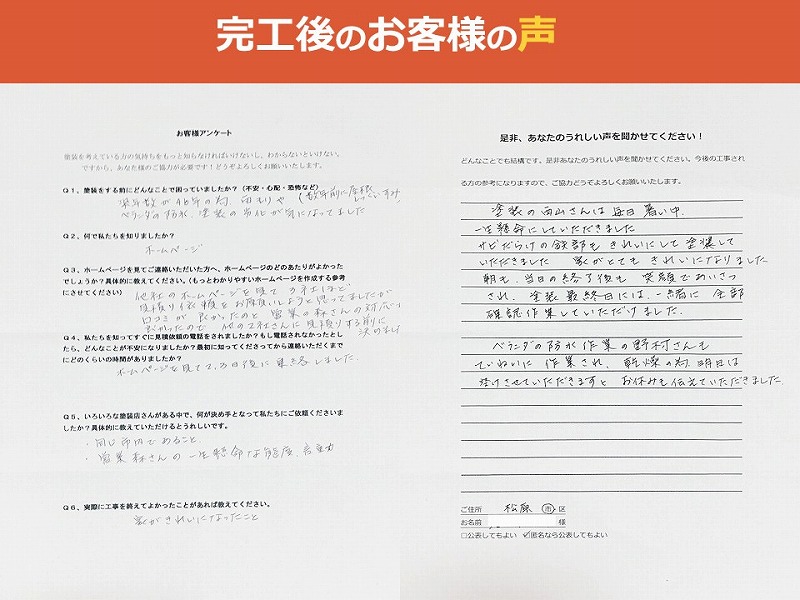 完工後のお客様の声
お客様アンケート
塗装を考えている方の気持ちをもっと知らなければいけないし、わからないといけない。
ですから、お客様のご協力が必要です!どうぞよろしくお願いいたします。
Q1、塗装をする前にどんなことで困っていましたか?(不安・心配・恐怖など)
築年数が 年の為、雨もりや (数年前に屋根
ベランダの防水、塗装の劣化が気になってました
Q2、何で私たちを知りましたか?
ホームページ
Q3、ホームページを見てご連絡いただいた方へ、ホームページのどのあたりがよかった
でしょうか?具体的に教えてください。(もっとわかりやすいホームページを作成する参考
にさせてください)
他社のホームページを見て 社ほど
見積り依頼をお願いしようと思ってましたが
口コミが良かったのと 営業の森さんの対応が
良かったので 他の2社さんに見積りする前に
決めま
Q4、私たちを知ってすぐに見積依頼の電話をされましたか?もし電話されなかったとし
たら、どんなことが不安になりましたか?最初に知ってくださってから連絡いただくまで
にどのくらいの時間がありましたか?
ホームページを見て 日後に連絡しました。
Q5、いろいろな塗装店さんがある中で、何が決め手となって私たちにご依頼くださいま
したか?具体的に教えていただけるとうれしいです。
・同じ市内であること、
・営業森さんの一生懸命な態度、
Q6、実際に工事を終えてよかったことがあれば教えてください。
家がきれいになったこと
是非、あなたのうれしい声を聞かせてください!
どんなことでも結構です。是非あなたのうれしい声を聞かせてください。今後の工事され
る方の参考になりますので、ご協力どうぞよろしくお願いいたします。
塗装の西山さんは毎日暑い中、
一生懸命にしていただきました
サビだらけの鉄部もきれいにして塗装して
いただきました 家がとてもきれいになりました
朝も、当日の終了後も 笑顔であいさつ
され、塗装最終日には、一緒に全部
確認作業していただけました。
ベランダの防水作業の野村さんも
ていねいに作業され、乾燥の為、明日は
空けさせていただきますと お休みも伝えていただきました
ご住所 松原 市 区
お名前 様
□公表してもよい ☑匿名なら公表してもよい